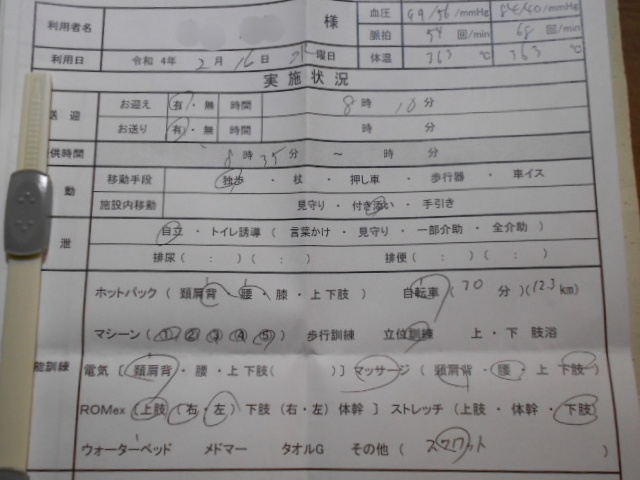 利用者名 様 血圧 99/56/mmHg 82/40/mmHg
脈拍 54 回/min 68 回/min
利用日 令和 4年 2月 16日 曜日 体温 363 ℃ 363 ℃
実施状況
送 迎 お迎え 有・無 時間 8時 10分
お送り 有・無 時間 時 分
供時間 8時 35分 ～ 時 分
動 移動手段 独歩 ・ 杖 ・ 押し車 ・ 歩行器 ・ 車イス
施設内移動 見守り ・ 付き添い ・ 手引き
泄 自立 ・ トイレ誘導 ( 言葉かけ ・ 見守り ・ 一部介助 ・ 全介助 )
排尿 ( : ) ( : ) 排便 ( : ) ( : )
ホットパック ( 頚肩背 ・ 腰 ・ 膝 ・ 上 下肢 ) 自転車 ( 70 分 ) (12.3 km)
マシーン ( ① ② ③ ④ ⑤ ) 歩行訓練 立位訓練 上 ・ 下 肢浴
能訓練 電気 [ 頚肩背 ・ 腰 ・ 上 下肢 ( )] マッサージ ( 頚肩背 ・ 腰 ・ 上 下肢 )
ROMex [ 上肢 ( 右 ・ 左 ) 下肢 (右・左) 体幹 ] ストレッチ (上肢 ・ 体幹 ・ 下肢 )
ウォーターベッド メドマー タオルG その他 ( スクワット